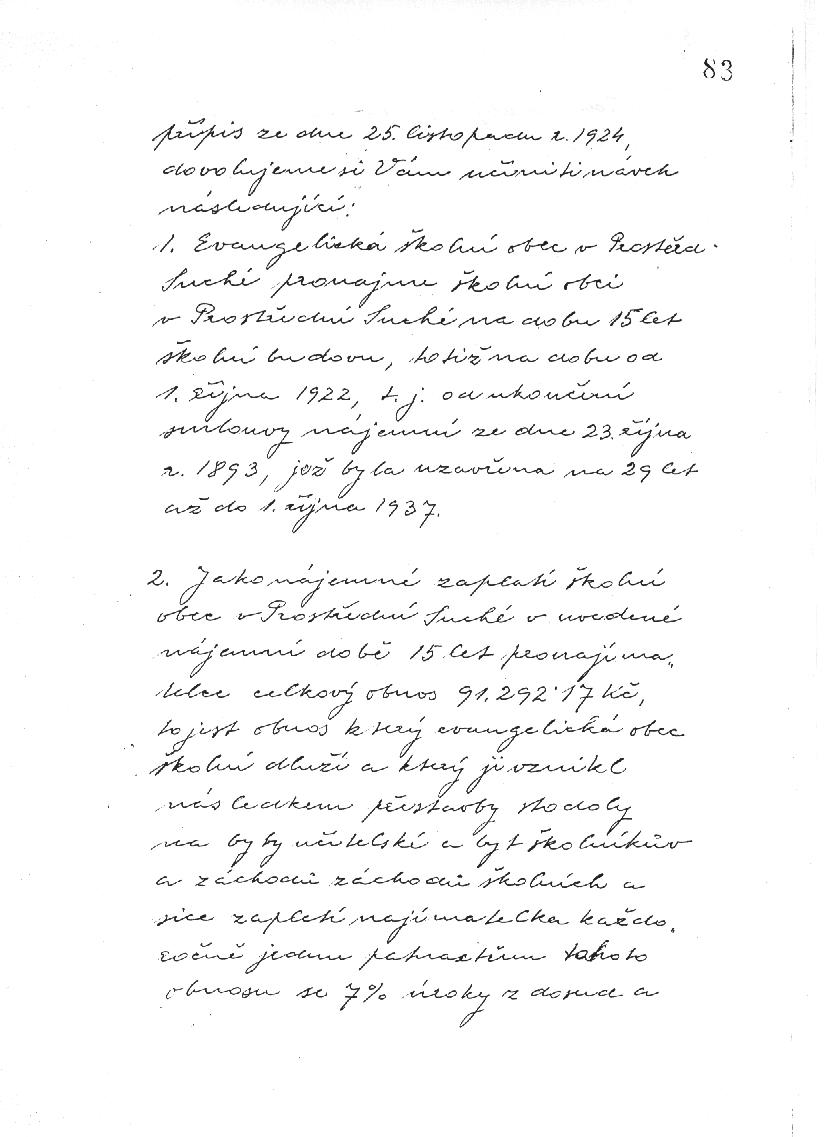 83
přípis ze dne 25. listopadu r. 1924,
dovolujeme si Vám učiniti návrh
následující:
1. Evangelická školní obec v Prostřed.
Suché pronajme školní obci
v Prostřední Suché na dobu 15 let
školní budovu, totiž na dobu od
1. října 1922, t. j. od ukončení
smlouvy nájemní ze dne 23. října
r. 1893, jež byla uzavřena na 29 let
až do 1. října 1937.
2. Jako nájemné zaplatí školní
obec v Prostřední Suché v uvedené
nájemní době 15 let pronajíma-
telce celkový obnos 91.292·17 Kč,
to jest obnos který evangelická obec
školní dluží a který jí vznikl
následkem přístavby stodoly
na byty učitelské a byt školníkův
a záchodů záchodů školních a
sice zaplatí najímatelka každo-
ročně jednu patnactinu tohoto
obnosu se 7% úroky z dosud a